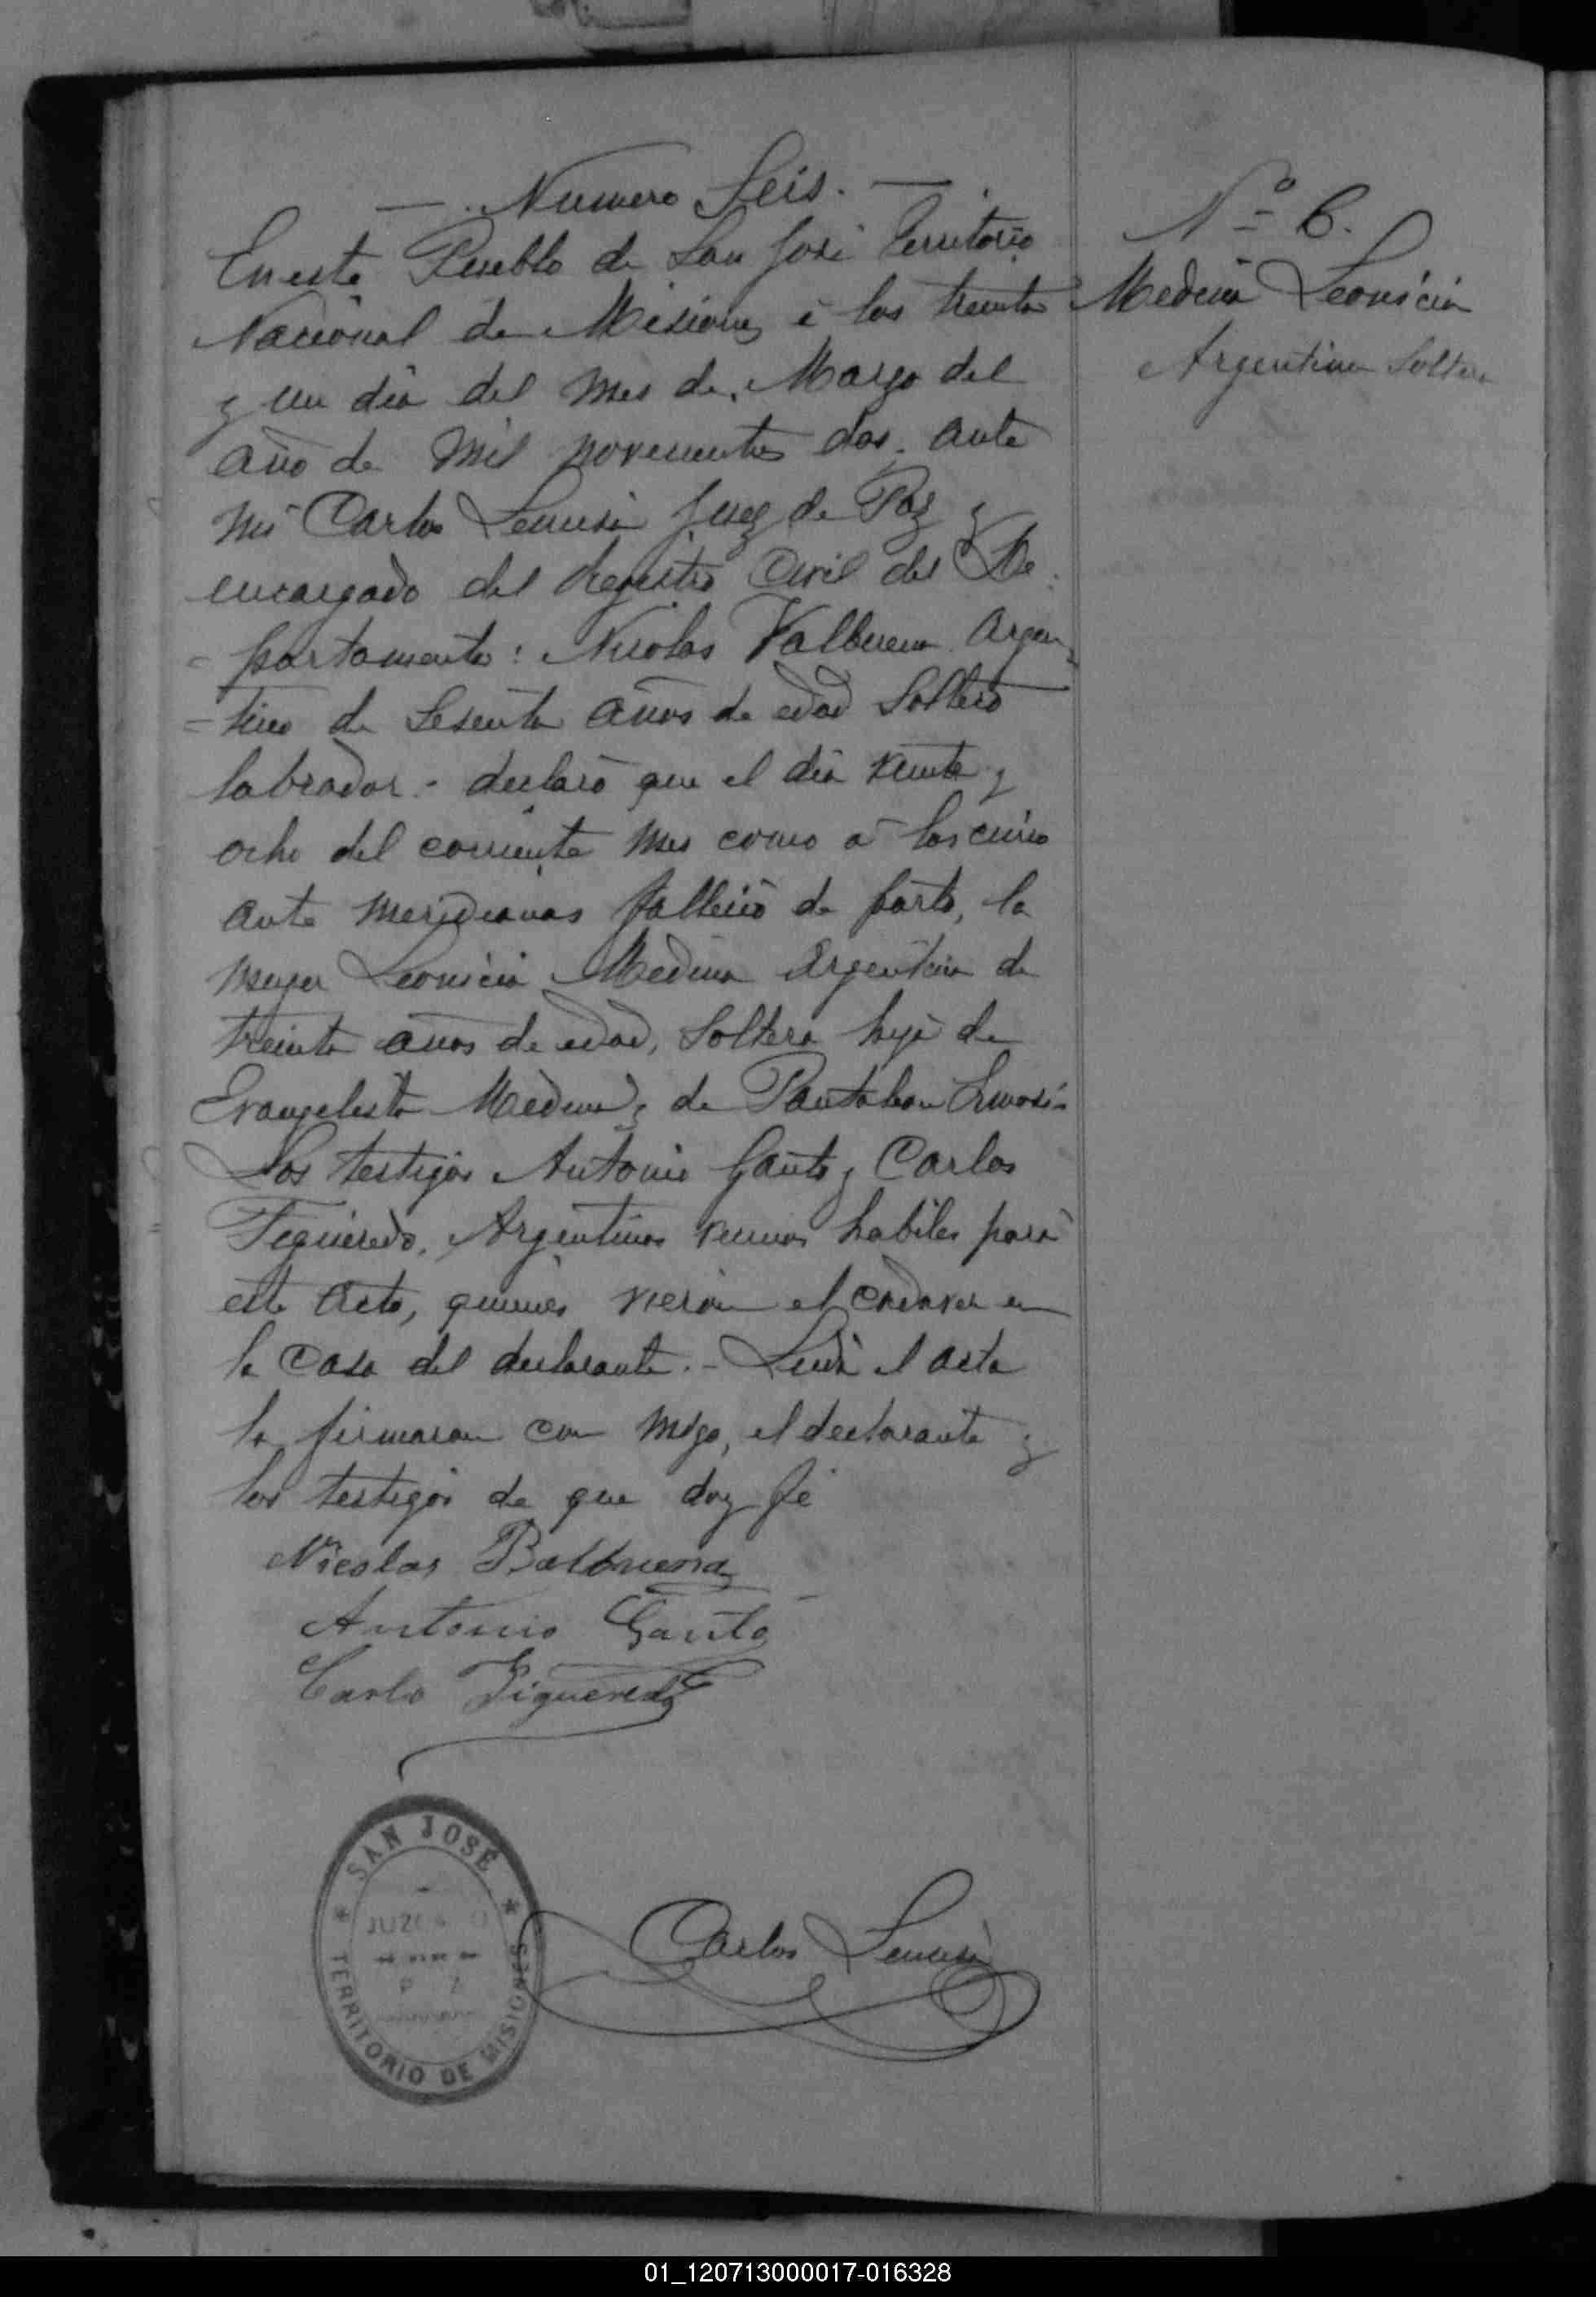 — . Numero Seis. —
En este Pueblo de San José Territorio
Nacional de Misiones á los treinta
y un dia del mes de Marzo del
año de mil novecientos dos. ante
mi Carlos Juez de Paz y
encargado del Registro Civil del De
= partamento: Nicolas Valbuena Argen
= tino de Sesenta años de edad Soltero
labrador.- declaró que el dia veinte y
ocho del corriente mes como á las cinco
ante meridianas falleció de parto, la
muger Leonicia Medina Argentina de
treinta años de edad, Soltera hija de
Evangelista Medina y de Pantaleon
Los testigos Antonio Gauto y Carlos
Figueredo, Argentinos vecinos habiles para
este acto, quienes vieron el cadaver en
la Casa del declarante.- Leida el acta
la firmaron con migo, el declarante y
los testigos de que doy fé
Nicolas Balbuena
Antonio Gauto
Carlo Figueredo
Carlos
Nº 6.
Medina Leonicia
Argentina Soltera
SAN JOSÉ
JUZGADO
TERRITORIO DE MISIONES
01_120713000017-016328